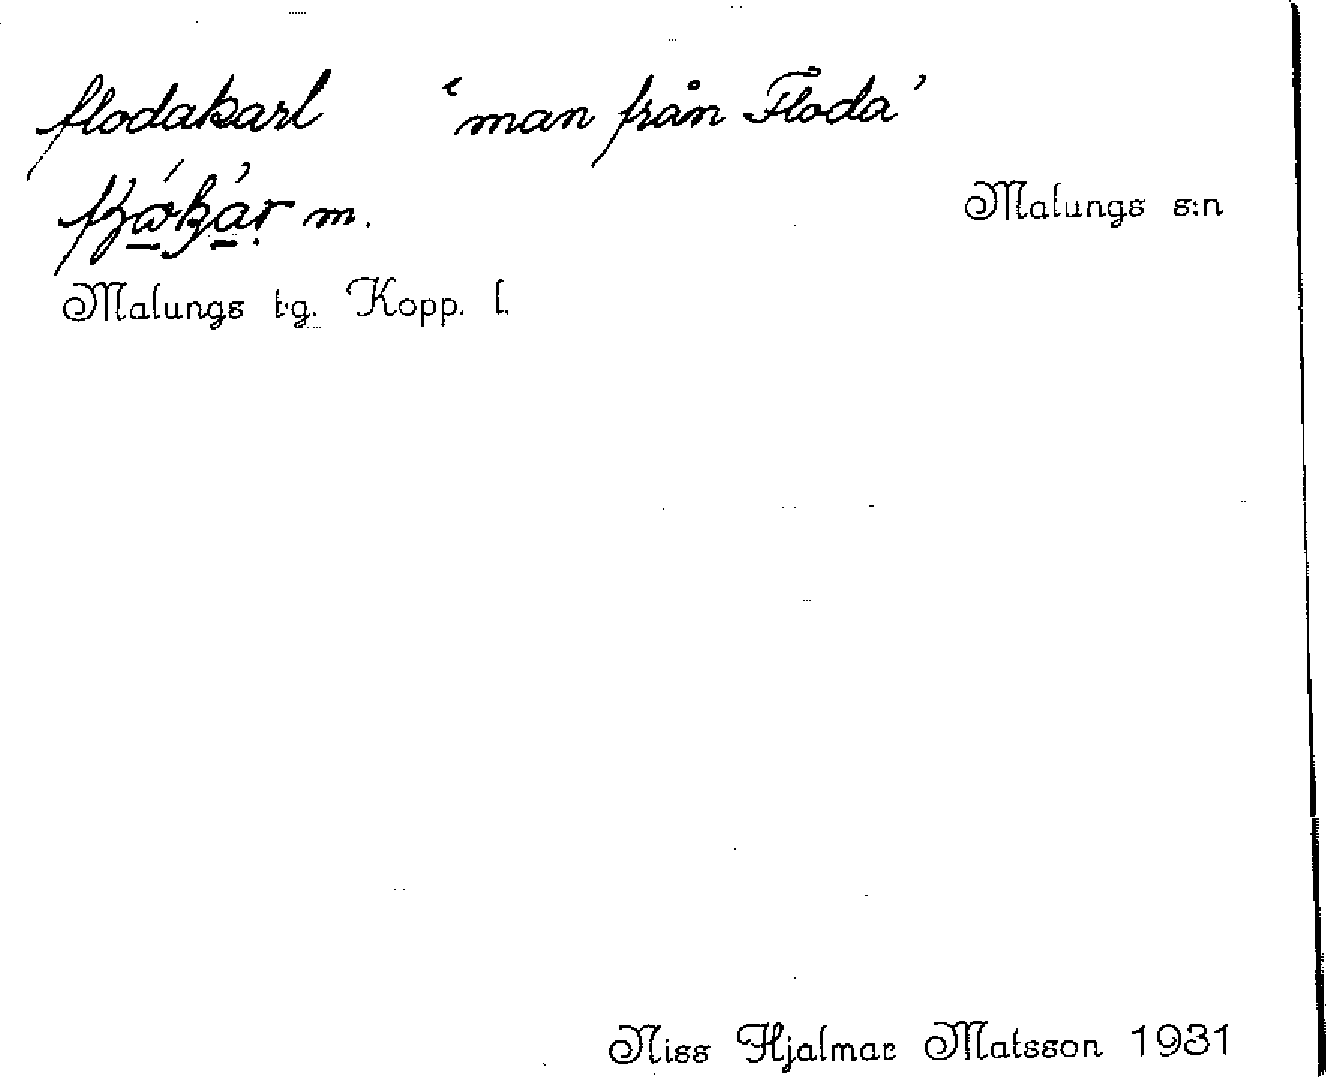 flodakarl ‘man från Floda’
m. Malungs s:n
Malungs t:g. Kopp. l.
Niss Hjalmar Matsson 1931